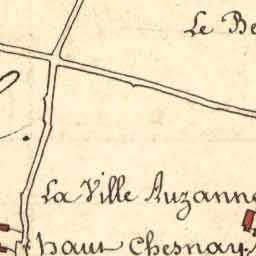 Le Be
La Ville Auzanne
haut Chesnay